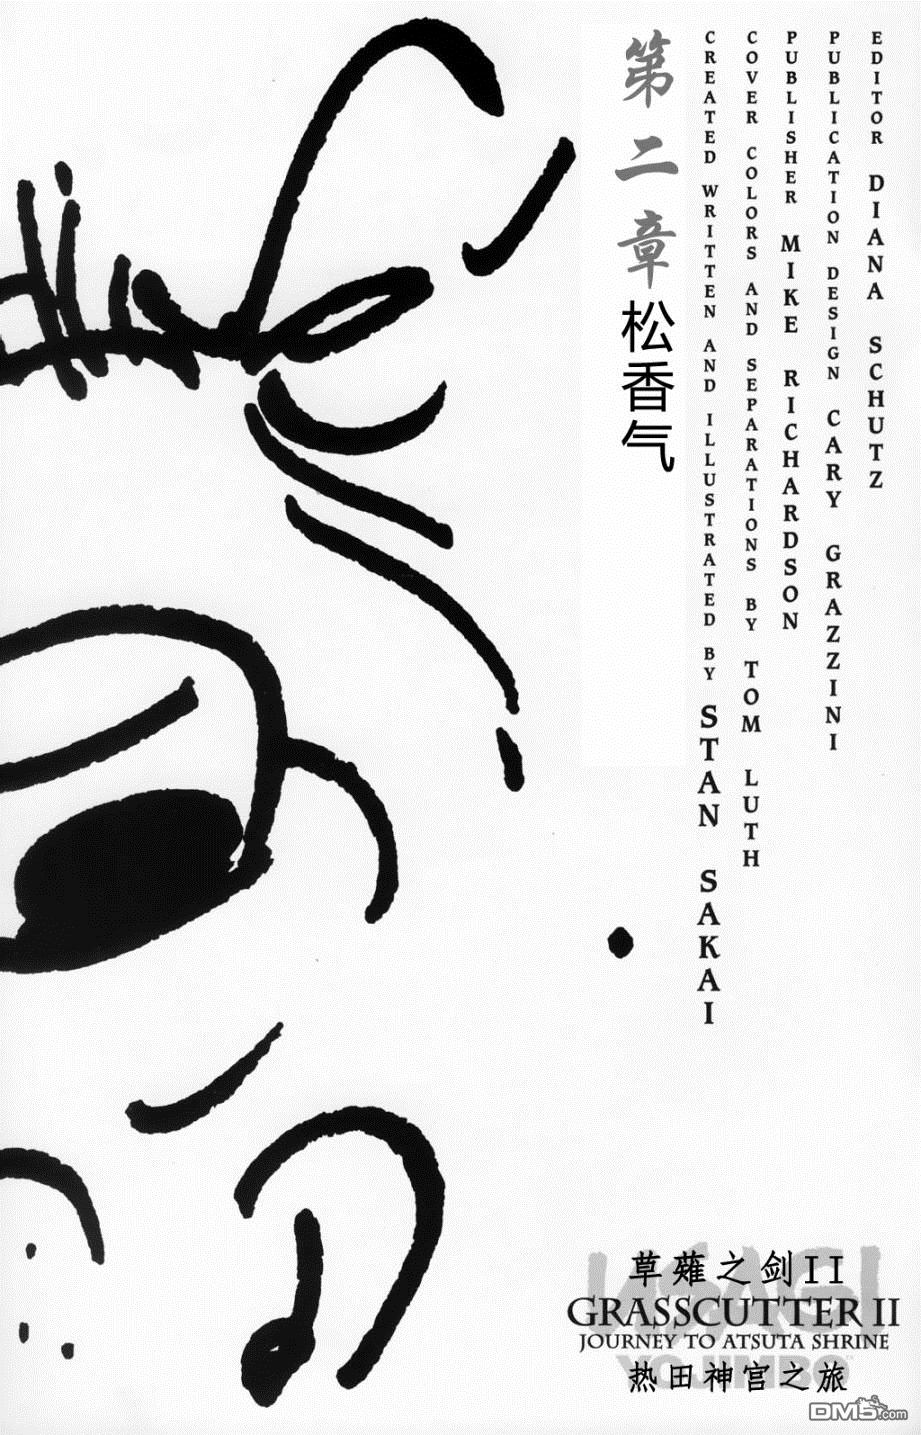 第二章
松香气
CREATED WRITTEN AND ILLUSTRATED BY STAN SAKAI
COVER COLORS AND SEPARATIONS BY TOM LUTH
PUBLISHER MIKE RICHARDSON
PUBLICATION DESIGN CARY GRAZZINI
EDITOR DIANA SCHUTZ
USAGI
草薙之剑II
GRASSCUTTER II
JOURNEY TO ATSUTA SHRINE
YOJIMBO™
热田神宫之旅
DM5.com